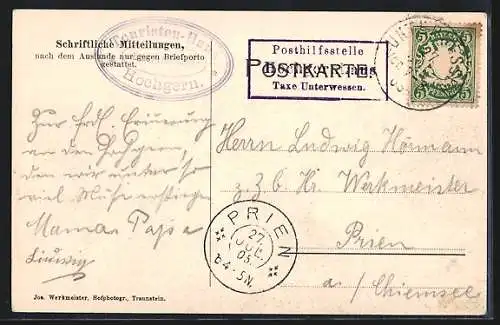 Touristen-Haus
Hochgern.
Schriftliche Mitteilungen,
nach dem Auslande nur gegen Briefporto
gestattet.
Posthilfsstelle
POSTKARTE
Taxe Unterwessen.
BAYERN
5 5
Zur frdl. Erinnerung
an den Hochgern,
den wir unter so
viel Mühe erstiegen
Mama Papa
Ludwig
Herrn Ludwig Hörmann
z. Z. b. Hr. Werkmeister
Prien
a/Chiemsee
PRIEN
27.
JUL.
05
6 4-5N.
Jos. Werkmeister, Hofphotogr., Traunstein.